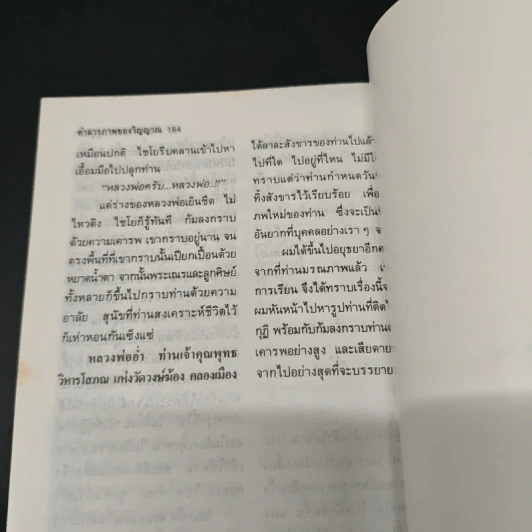 คำสารภาพของวิญญาณ 184
เหมือนปกติ ไชโยรีบคลานเข้าไปหา
เอื้อมมือไปปลุกท่าน
"หลวงพ่อครับ...หลวงพ่อ..!!"
แต่ร่างของหลวงพ่อเย็นชืด ไม่
ไหวติง ไชโยก็รู้ทันที ก้มลงกราบ
ด้วยความเคารพ เขากราบอยู่นาน จน
ตรงพื้นที่ที่เขากราบนั้นเปียกเปื้อนด้วย
หยาดน้ำตา จากนั้นพระเณรและลูกศิษย์
ทั้งหลายก็ขึ้นไปกราบท่านด้วยความ
อาลัย สุนัขที่ท่านสงเคราะห์ชีวิตไว้
ก็เห่าหอนกันเซ็งแซ่
หลวงพ่ออ่ำ ท่านเจ้าคุณพุทธ
วิหารโสภณ แห่งวัดวงษ์ฆ้อง คลองเมือง
ได้ลาละสังขารของท่านไปแล้ว
ไปที่ใด ไปอยู่ที่ไหน ไม่มี
ทราบแต่ว่าท่านกำหนดวัน
ทิ้งสังขารไว้เรียบร้อย เพื่อ
ภพใหม่ของท่าน ซึ่งจะเป็น
อันยากที่บุคคลอย่างเรา ๆ
ผมได้ขึ้นไปอยุธยาอีก
จากที่ท่านมรณภาพแล้ว
การเรียน จึงได้ทราบเรื่องนี้
ผมหันหน้าไปหารูปท่านที่ติด
กุฏิ พร้อมกับก้มลงกราบท่าน
เคารพอย่างสูง และเสียดาย
จากไปอย่างสุดที่จะบรรยาย